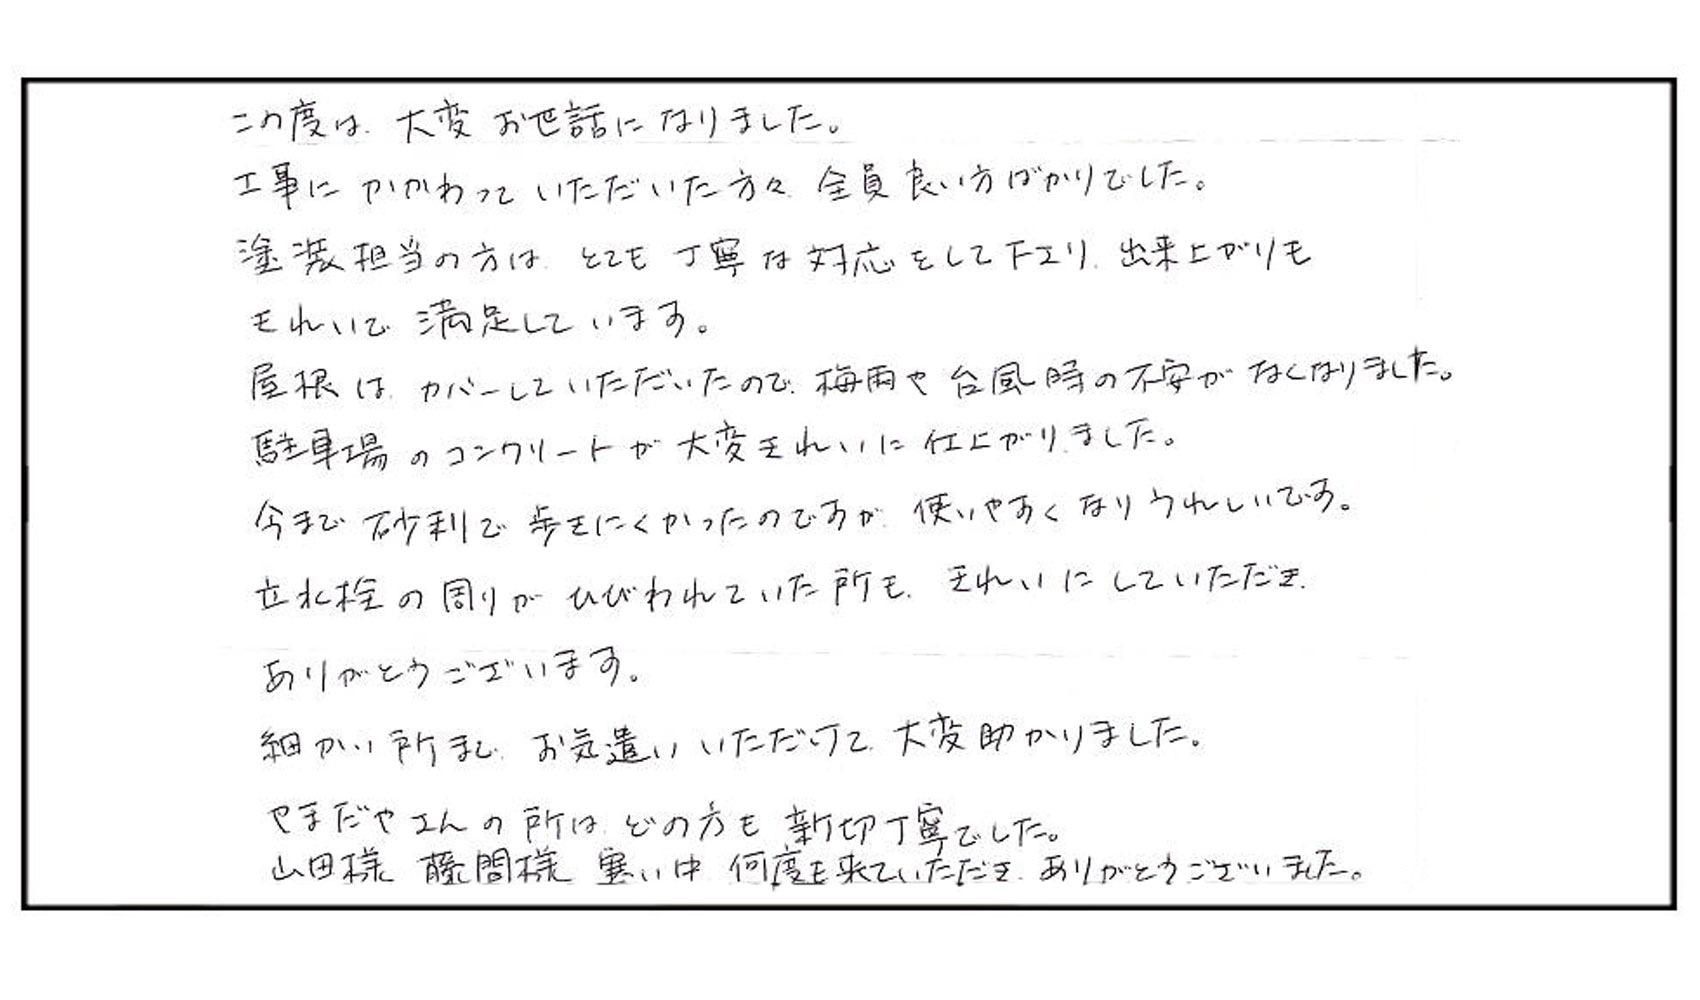 この度は、大変お世話になりました。
工事にかかわっていただいた方々、全員良い方ばかりでした。
塗装担当の方は、とても丁寧な対応をして下さり、出来上がりも
きれいで満足しています。
屋根は、カバーしていただいたので、梅雨や台風時の不安がなくなりました。
駐車場のコンクリートが大変きれいに仕上がりました。
今まで砂利で歩きにくかったのですが、使いやすくなりうれしいです。
立水栓の周りがひびわれていた所も、きれいにしていただき、
ありがとうございます。
細かい所まで、お気遣いいただけて、大変助かりました。
やまだやさんの所は、どの方も新切丁寧でした。
山田様 藤間様 寒い中、何度も来ていただき、ありがとうございました。